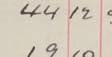 44 12
19 10